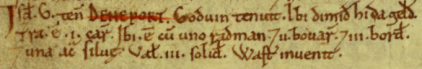 Isd. G. ten DENEPORT. Goduin tenuit. Ibi dimid hida geld.
Tra .e. i. car. Ibi .e. cu uno radman. 7 ii. bouar. 7 iii. bord.
una ac siluę. Val. iii. solid. Wast inuenit.